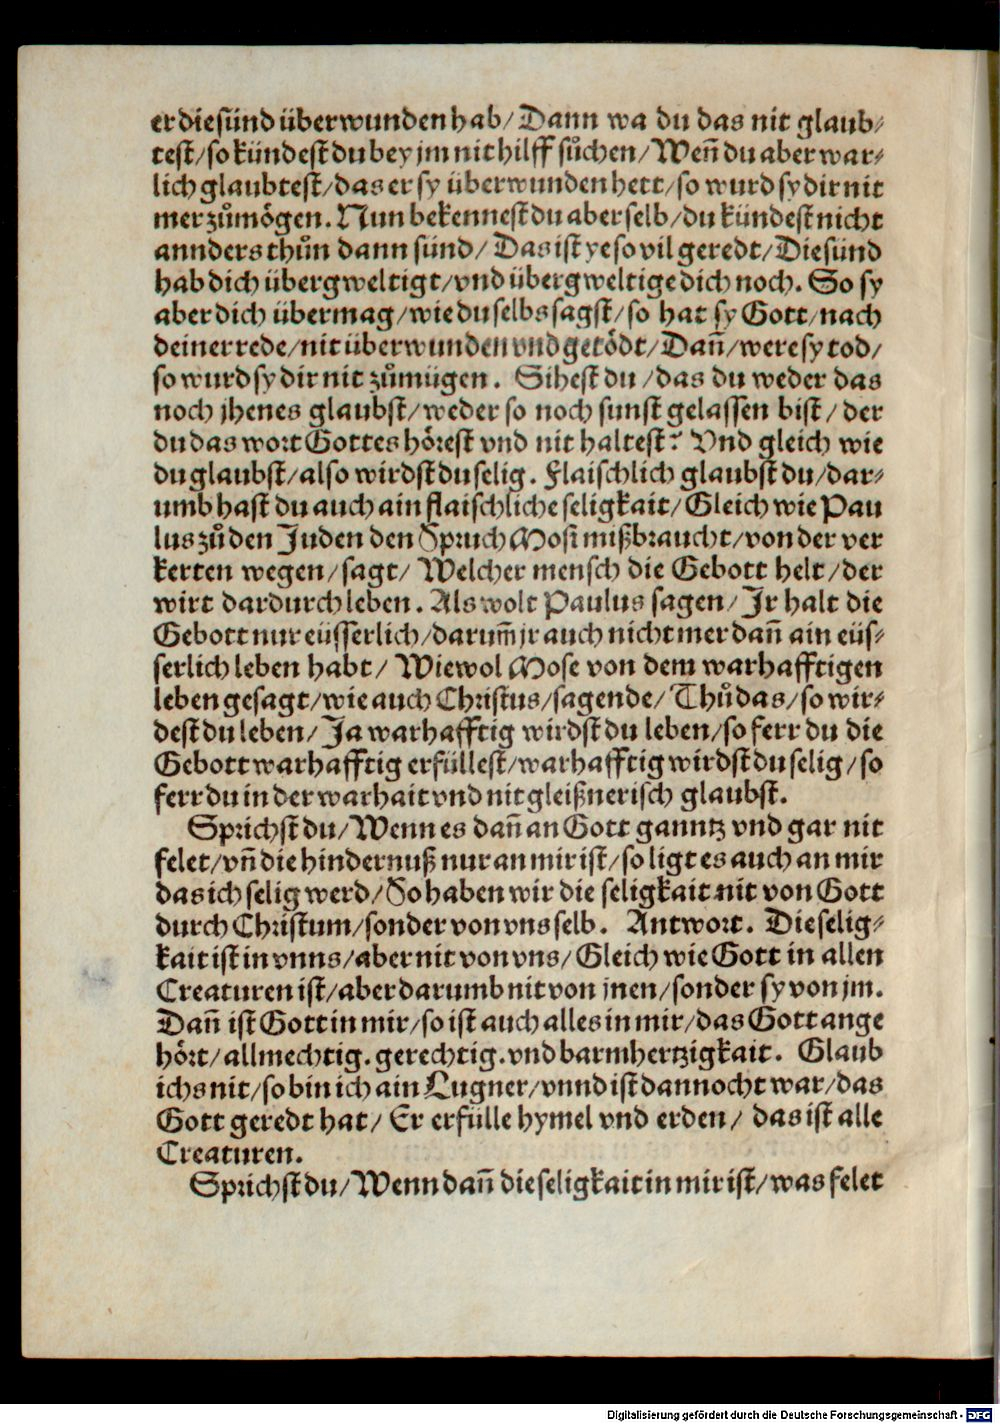 er die sünd überwunden hab/ Dann wa du das nit glaub⸗
test/ so kündest du bey jm nit hilff sůchen/ Weñ du aber war⸗
lich glaubtest/ das er sy überwunden hett/ so wurd sy dir nit
mer zůmögen. Nun bekennest du aber selb/ du kündest nicht
annders thůn dann sünd/ Das ist ye so vil geredt/ Die sünd
hab dich übergweltigt/ vnd übergweltige dich noch. So sy
aber dich übermag/ wie du selbs sagst/ so hat sy Gott/ nach
deiner rede/ nit überwunden vnd getödt/ Dañ/ were sy tod/
so wurd sy dir nit zůmügen. Sihest du/ das du weder das
noch jhenes glaubst/ weder so noch sunst gelassen bist/ der
du das wort Gottes hörest vnd nit haltest? Vnd gleich wie
du glaubst/ also wirdst du selig. Flaischlich glaubst du/ dar⸗
umb hast du auch ain flaischliche seligkait/ Gleich wie Pau
lus zů den Juden den Spruch Mosi mißbraucht/ von der ver
kerten wegen/ sagt/ Welcher mensch die Gebott helt/ der
wirt dardurch leben. Als wolt Paulus sagen/ Jr halt die
Gebott nur eüsserlich/ darum̃ jr auch nicht mer dañ ain eüs⸗
serlich leben habt/ Wiewol Mose von dem warhafftigen
leben gesagt/ wie auch Christus/ sagende/ Thů das/ so wir⸗
dest du leben/ Ja warhafftig wirdst du leben/ so ferr du die
Gebott warhafftig erfüllest/ warhafftig wirdst du selig/ so
ferr du in der warhait vnd nit gleißnerisch glaubst.
Sprichst du/ Wenn es dañ an Gott ganntz vnd gar nit
felet/ vñ die hindernuß nur an mir ist/ so ligt es auch an mir
das ich selig werd/ So haben wir die seligkait nit von Gott
durch Christum/ sonder von vns selb. Antwort. Die selig⸗
kait ist in vnns/ aber nit von vns/ Gleich wie Gott in allen
Creaturen ist/ aber darumb nit von jnen/ sonder sy von jm.
Dañ ist Gott in mir/ so ist auch alles in mir/ das Gott ange
hört/ allmechtig. gerechtig. vnd barmhertzigkait. Glaub
ichs nit/ so bin ich ain Lugner/ vnnd ist dannocht war/ das
Gott geredt hat/ Er erfülle hymel vnd erden/ das ist alle
Creaturen.
Sprichst du/ Wenn dañ die seligkait in mir ist/ was felet
Digitalisierung gefördert durch die Deutsche Forschungsgemeinschaft - DFG